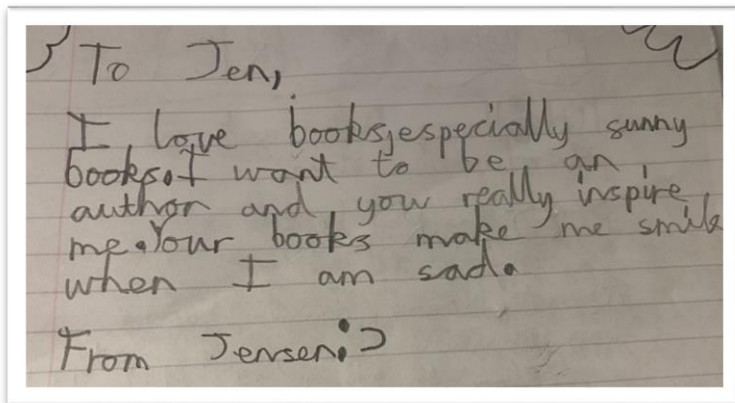 To Jen,
I love books,especially sunny
books.I want to be an
author and you really inspire
me.Your books make me smile
when I am sad.
From Jensen:)